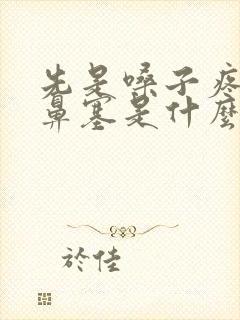 先是嗓子疼
鼻塞是什麼
於佳